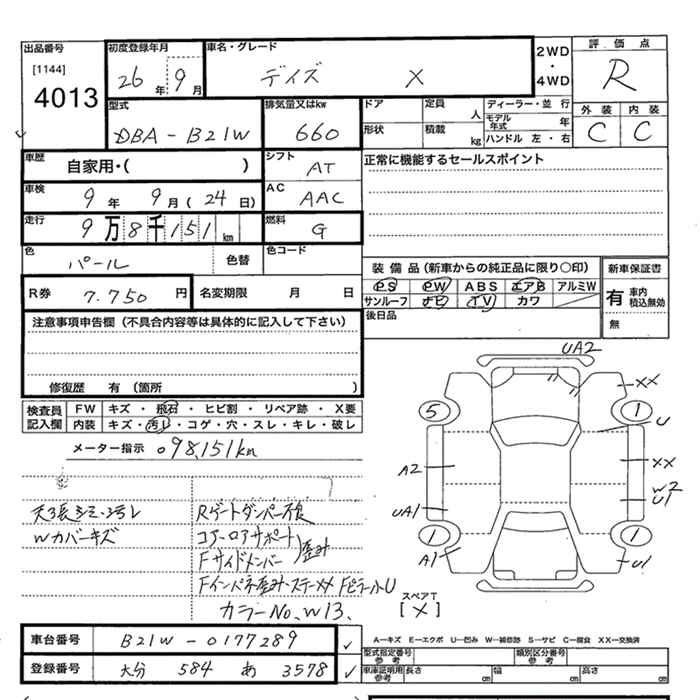 出品番号
[1144]
4013
初度登録年月
26年9月
車名・グレード
デイズ X
2WD
・
4WD
評価点
R
型式
DBA-B21W
排気量又はkw
660
ドア
定員
人
ディーラー・並行
形状
積載
kg
モデル年式
年
ハンドル 左・右
外装
内装
C
C
車歴
自家用・( )
シフト
AT
正常に機能するセールスポイント
車検
9年9月(24日)
AC
AAC
走行
9万8千151km
燃料
G
色
パール
色替
色コード
R券
7.750円
名変期限 月 日
装備品(新車からの純正品に限り〇印)
PS PW ABS エアB アルミW
サンルーフ ナビ TV カワ
後日品
新車保証書
有
車内
積込無効
無
注意事項申告欄(不具合内容等は具体的に記入して下さい)
修復歴 有 (箇所 )
検査員
記入欄
FW キズ・飛石・ヒビ割・リペア跡・X要
内装 キズ・汚レ・コゲ・穴・スレ・キレ・破レ
メーター指示 098,151km
天張シミ・ヨゴレ
Wカバーキズ
Rゲートダンパー不良
コアーロアサポート
Fサイドメンバー
歪み
Fインパネ歪み・ステーXX FピラーU
カラーNo, W13.
UA2
XX
5
1
U
A2
XX
W2
U1
UA1
1
1
A1
U1
スペアT
[X]
車台番号
B21W-0177289
登録番号
大分 584 あ 3578
A―キズ E―エクボ U―凹み W―補修跡 S―サビ C―腐食 XX―交換済
型式指定番号
参考
類別区分番号
参考
車庫証明用
参考
長さ cm
幅 cm
高さ cm